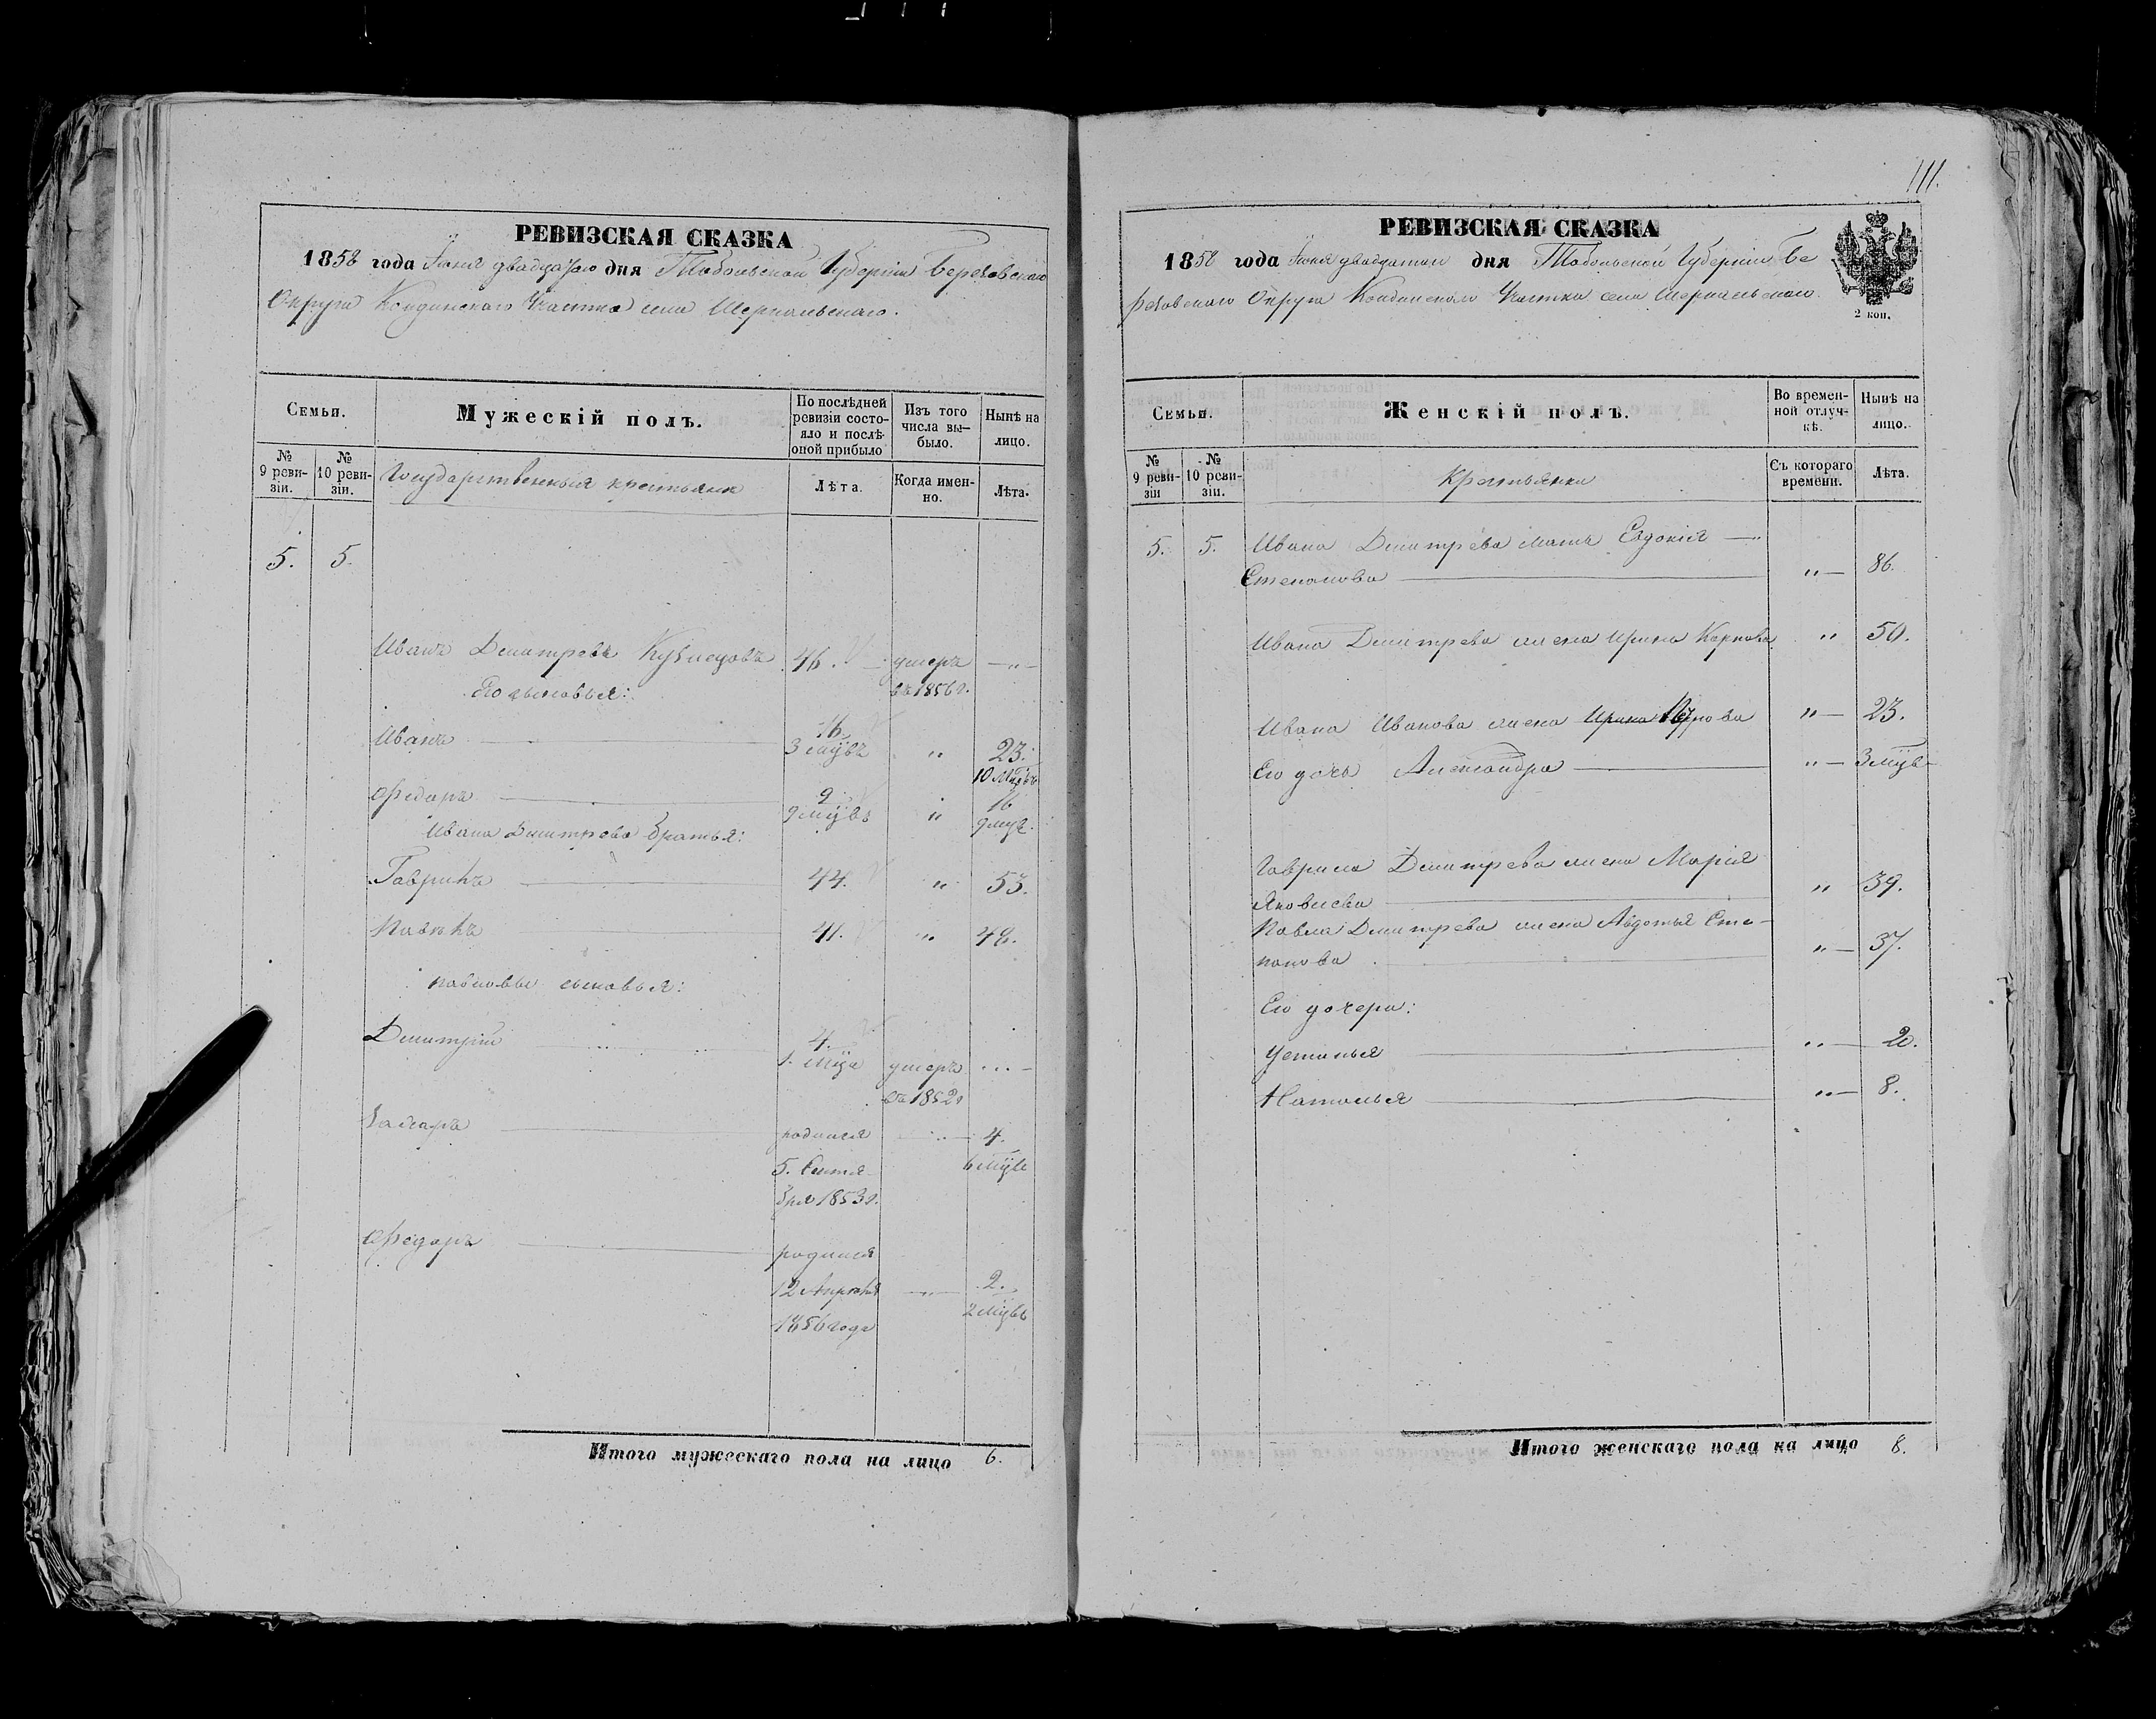 111.
РЕВИЗСКАЯ СКАЗКА
1858 года Іюня двадцатаго дня Тобольской Губерніи Березовскаго
Округа Кондинскаго Участка села Шеркальскаго.
Семьи.
Мужескій полъ.
По послѣдней ревизіи состояло и послѣ оной прибыло
Изъ того числа выбыло.
Нынѣ на лицо.
№ 9 ревизіи.
№ 10 ревизіи.
Государственныя крестьяне
Лѣта.
Когда именно.
Лѣта.
5. 5.
Иванъ Дмитревъ Кузнецовъ 46. умеръ —„—
Его сыновья: въ 1856г.
Иванъ 16. 3 мцвъ „ 23. 10 мцвъ
Федоръ 9. 9 мцвъ „ 16 9 мцв.
Ивана Дмитрева братья:
Гаврилъ 44. „ 53.
Павелъ 41. „ 49.
павловы сыновья:
Дмитрій 4. 1. мца умеръ въ 1852г
Захаръ родился 5. Сентября 1853г. —„— 4. 6 мцвъ
Федоръ родился 12 Апрѣля 1856 года —„— 2. 2 мцвъ
Итого мужескаго пола на лицо 6.
РЕВИЗСКАЯ СКАЗКА
1858 года Іюня двадцатаго дня Тобольской Губерніи Бе
резовскаго Округа Кондинскаго Участка села Шеркальскаго.
2 коп.
Семьи.
Женскій полъ.
Во временной отлучкѣ.
Нынѣ на лицо.
№ 9 ревизіи
№ 10 ревизіи.
Крестьянки
Съ котораго времени.
Лѣта.
5. 5. Ивана Дмитрева мать Евдокія —
Степанова „— 86.
Ивана Дмитрева жена Ирина Карпова „ 50.
Ивана Иванова жена Ирина „— 23.
Его дочь Александра „— 3 мцв
Гаврила Дмитрева жена Марія
Яковлева „ 39.
Павла Дмитрева жена Авдотья Сте-
панова „— 37.
Его дочери:
Устинья „— 20.
Наталья „— 8.
Итого женскаго пола на лицо 8.